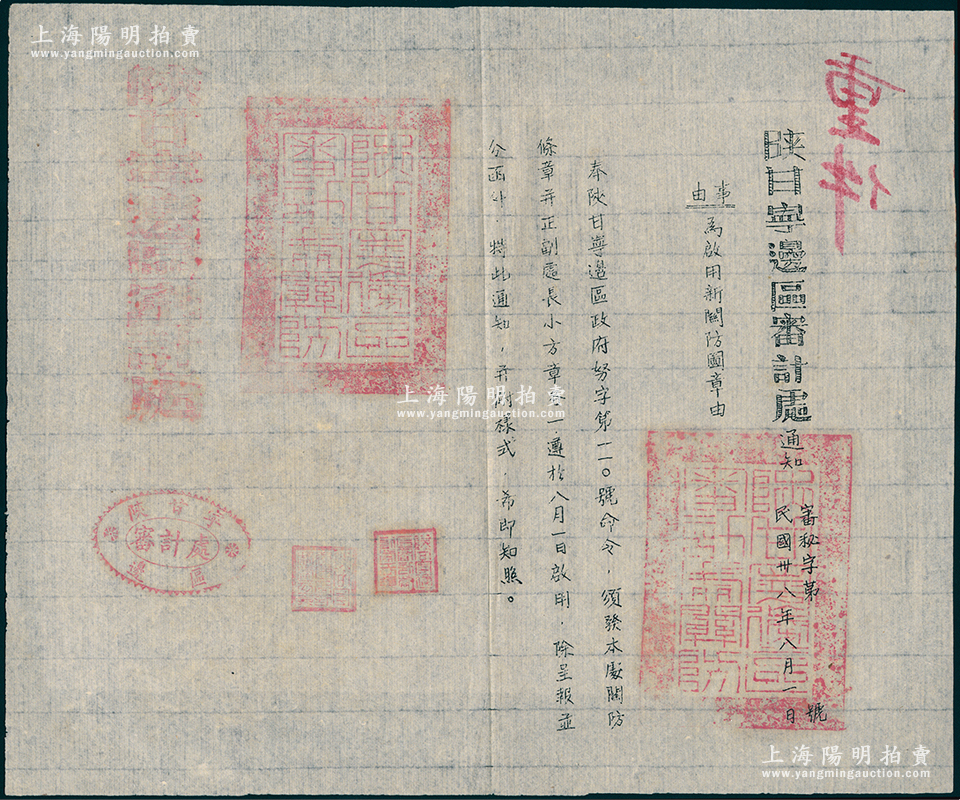 重件
陝甘寧邊區審計處通知
審秘字第 號
民國卅八年八月一日
事由
為啟用新關防圖章由
奉陝甘寧邊區政府努字第一一〇號命令,須發本處關防
條章并正副處長小方章各一,遵於八月一日啟用,除呈報並
分函外,特此通知,并附樣式,希即知照。
陝甘寧邊區審計處
陝甘寧
審計處
邊區
上海陽明拍賣
www.yangmingauction.com
上海陽明拍賣
www.yangmingauction.com
上海陽明拍賣
www.yangmingauction.com
上海陽明拍賣
www.yangmingauction.com